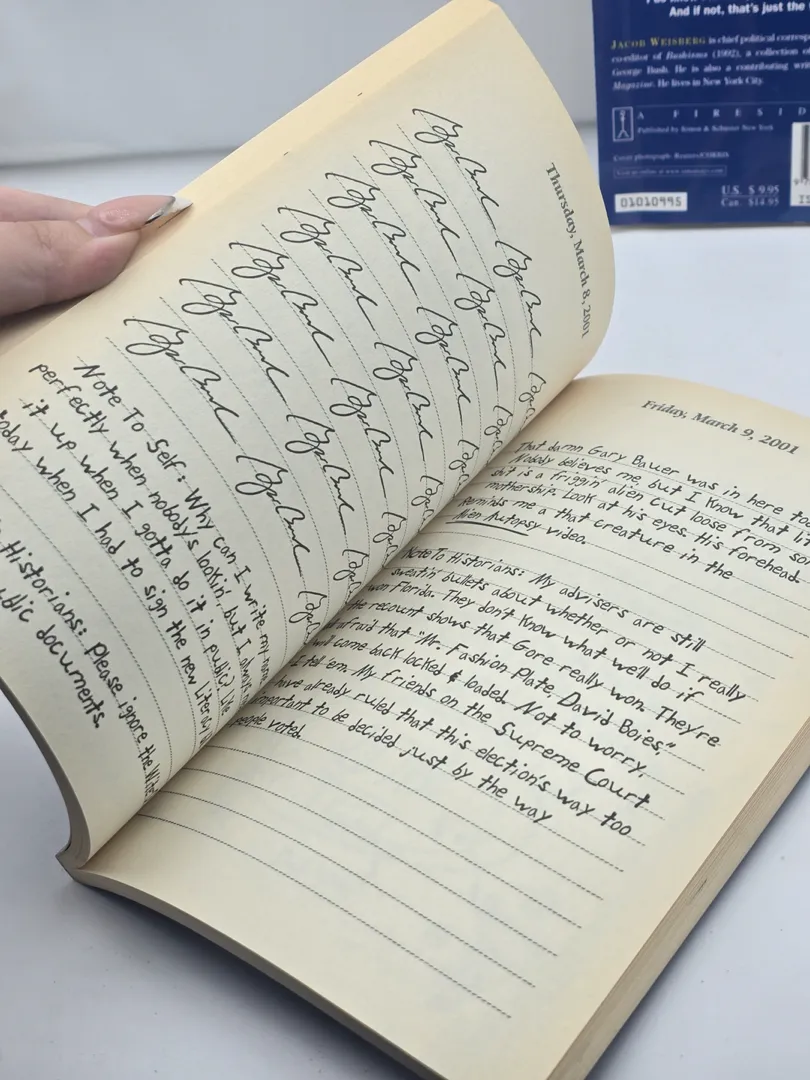 Thursday, March 8, 2001
Note To Self: Why can I write my
perfectly when nobody's lookin', but I
it up when I gotta do it in public?
today when I had to sign the new
Historians: Please ignore the
documents.
Friday, March 9, 2001
That damn Gary Bauer was in here
Nobody believes me, but I know that
shit is a friggin' alien cut loose from
mothership. Look at his eyes. His forehead.
Reminds me a that creature in the
Alien Autopsy video.
Note To Historians: My advisers are still
sweatin' bullets about whether or not I really
won Florida. They don't know what we'll do if
the recount shows that Gore really won. They're
afraid that "Mr. Fashion Plate, David Boies,"
will come back locked & loaded. Not to worry,
I tell 'em. My friends on the Supreme Court
have already ruled that this election's way too
important to be decided just by the way
people voted.
And if not, that's just the
JACOB WEISBERG is chief political
co-editor of Bushisms (1992), a collection of
George Bush. He is also a contributing
Magazine. He lives in New York City.
A F I R E S I D
Published by Simon & Schuster New York
01010995
U.S. $ 9.95
Can. $14.95